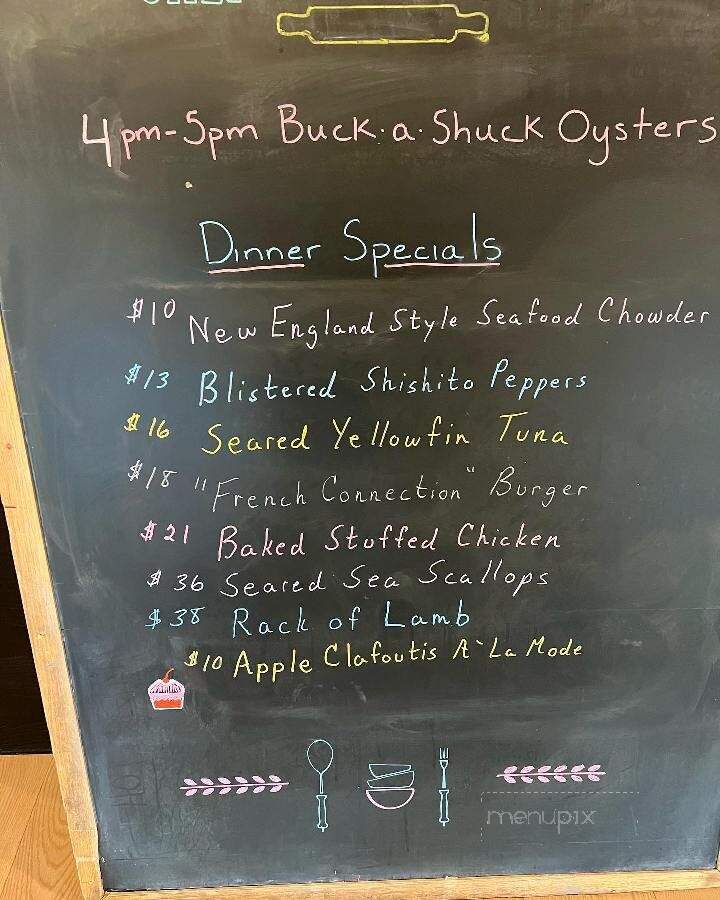 4pm-5pm Buck·a·Shuck Oysters
Dinner Specials
$10 New England Style Seafood Chowder
$13 Blistered Shishito Peppers
$16 Seared Yellowfin Tuna
$18 "French Connection" Burger
$21 Baked Stuffed Chicken
$36 Seared Sea Scallops
$38 Rack of Lamb
$10 Apple Clafoutis A` La Mode
menupix